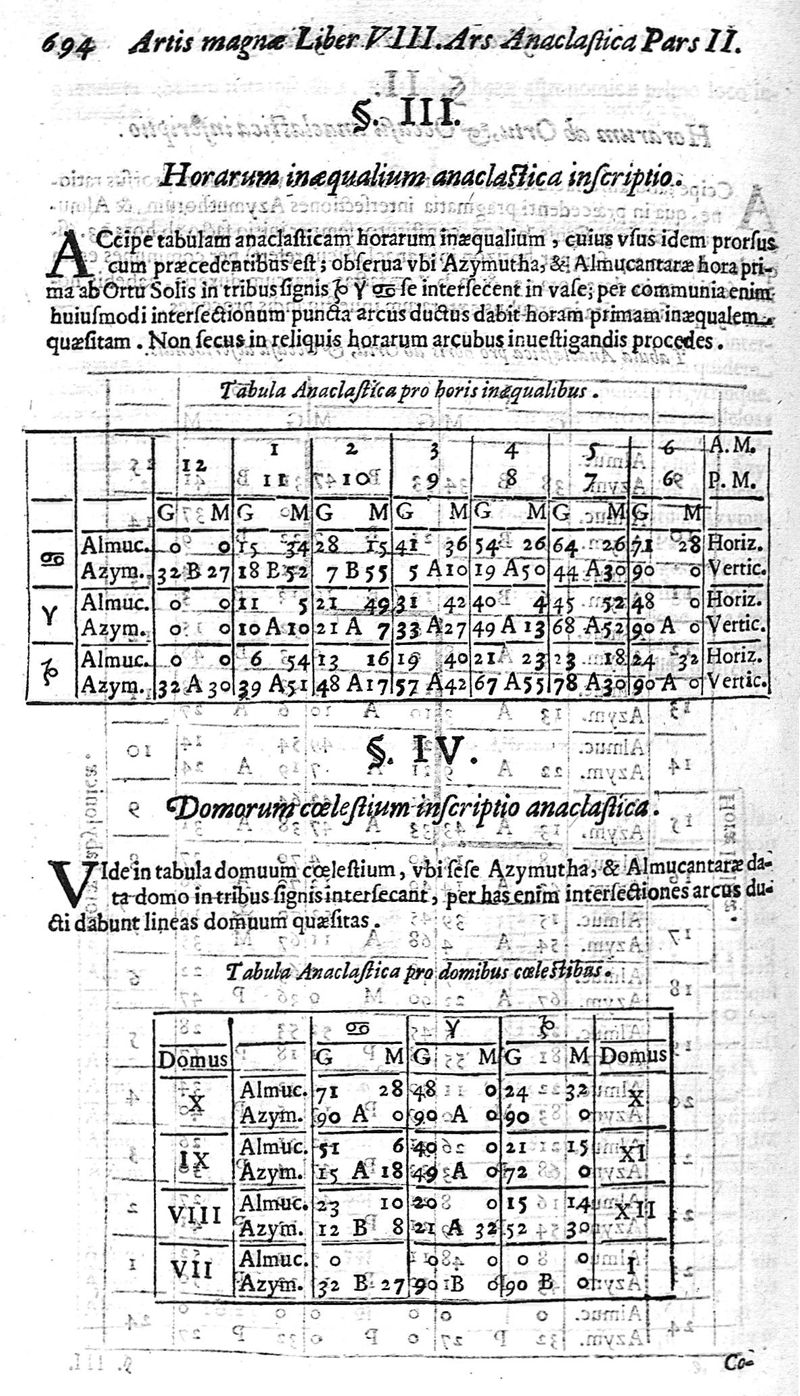 694 Artis magnæ Liber VIII. Ars Anaclastica Pars II.
§. III.
Horarum inæqualium anaclastica inscriptio.
ACcipe tabulam anaclasticam horarum inæqualium, cuius vsus idem prorsus
cum præcedentibus est; obserua vbi Azymutha, & Almucantaræ hora pri-
ma ab Ortu Solis in tribus signis ♑ ♈ ♋ se intersecent in vase; per communia enim
huiusmodi intersectionum puncta arcus ductus dabit horam primam inæqualem
quæsitam. Non secus in reliquis horarum arcubus inuestigandis procedes.
Tabula Anaclastica pro horis inæqualibus.
12 1 2 3 4 5 6 A.M.
11 10 9 8 7 6 P.M.
G M G M G M G M G M G M G M
♋ Almuc. 0 0 15 34 28 15 41 36 54 26 64 26 71 28 Horiz.
Azym. 32 B 27 18 B 52 7 B 55 5 A 10 19 A 50 44 A 30 90 0 Vertic.
♈ Almuc. 0 0 11 5 21 49 31 42 40 4 45 52 48 0 Horiz.
Azym. 0 0 10 A 10 21 A 7 33 A 27 49 A 13 68 A 52 90 A 0 Vertic.
♑ Almuc. 0 0 6 54 13 16 19 40 21 23 23 18 24 32 Horiz.
Azym. 32 A 30 39 A 51 48 A 17 57 A 42 67 A 55 78 A 30 90 A 0 Vertic.
§. IV.
Domorum cœlestium inscriptio anaclastica.
VIde in tabula domuum cœlestium, vbi sese Azymutha, & Almucantaræ da-
ta domo in tribus signis intersecant, per has enim intersectiones arcus du-
cti dabunt lineas domuum quæsitas.
Tabula Anaclastica pro domibus cœlestibus.
♋ ♈ ♑
Domus G M G M G M Domus
X Almuc. 71 28 48 0 24 32 X
Azym. 90 A 0 90 A 0 90 0
IX Almuc. 51 6 40 0 21 15 XI
Azym. 15 A 18 49 A 0 72 0
VIII Almuc. 23 10 20 0 15 14 XII
Azym. 12 B 8 21 A 32 52 30
VII Almuc. 0 0 0 0 0 I
Azym. 32 B 27 90 B 0 90 B 0
Co-